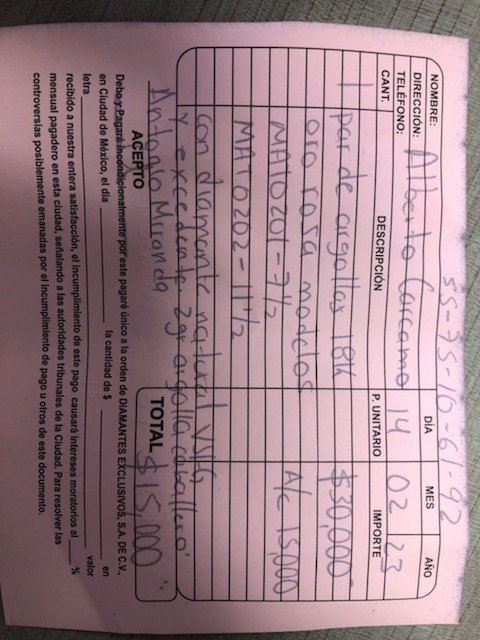 55-75-10-61-92
DÍA MES AÑO
NOMBRE: Alberto Carcamo 14 02 23
DIRECCIÓN:
TELÉFONO:
CANT. DESCRIPCIÓN P. UNITARIO IMPORTE
1 par de argollas 18k $30,000
oro rosa modelos A/c 15,000
MATO201-7 1/2
MATO202-11 1/2
con diamante natural VS1G
y excedente 2gr argolla caballero
Antonio Miranda TOTAL $15,000
ACEPTO
Debo y Pagaré incondicionalmente por este pagaré único a la orden de DIAMANTES EXCLUSIVOS, S.A. DE C.V.,
en Ciudad de México, el día la cantidad de $ en
letra valor
recibido a nuestra entera satisfacción, el incumplimiento de este pago causará intereses moratorios al %
mensual pagadero en esta ciudad, señalando a las autoridades tribunales de la Ciudad. Para resolver las
controversias posiblemente emanadas por el incumplimiento de pago u otros de este documento.